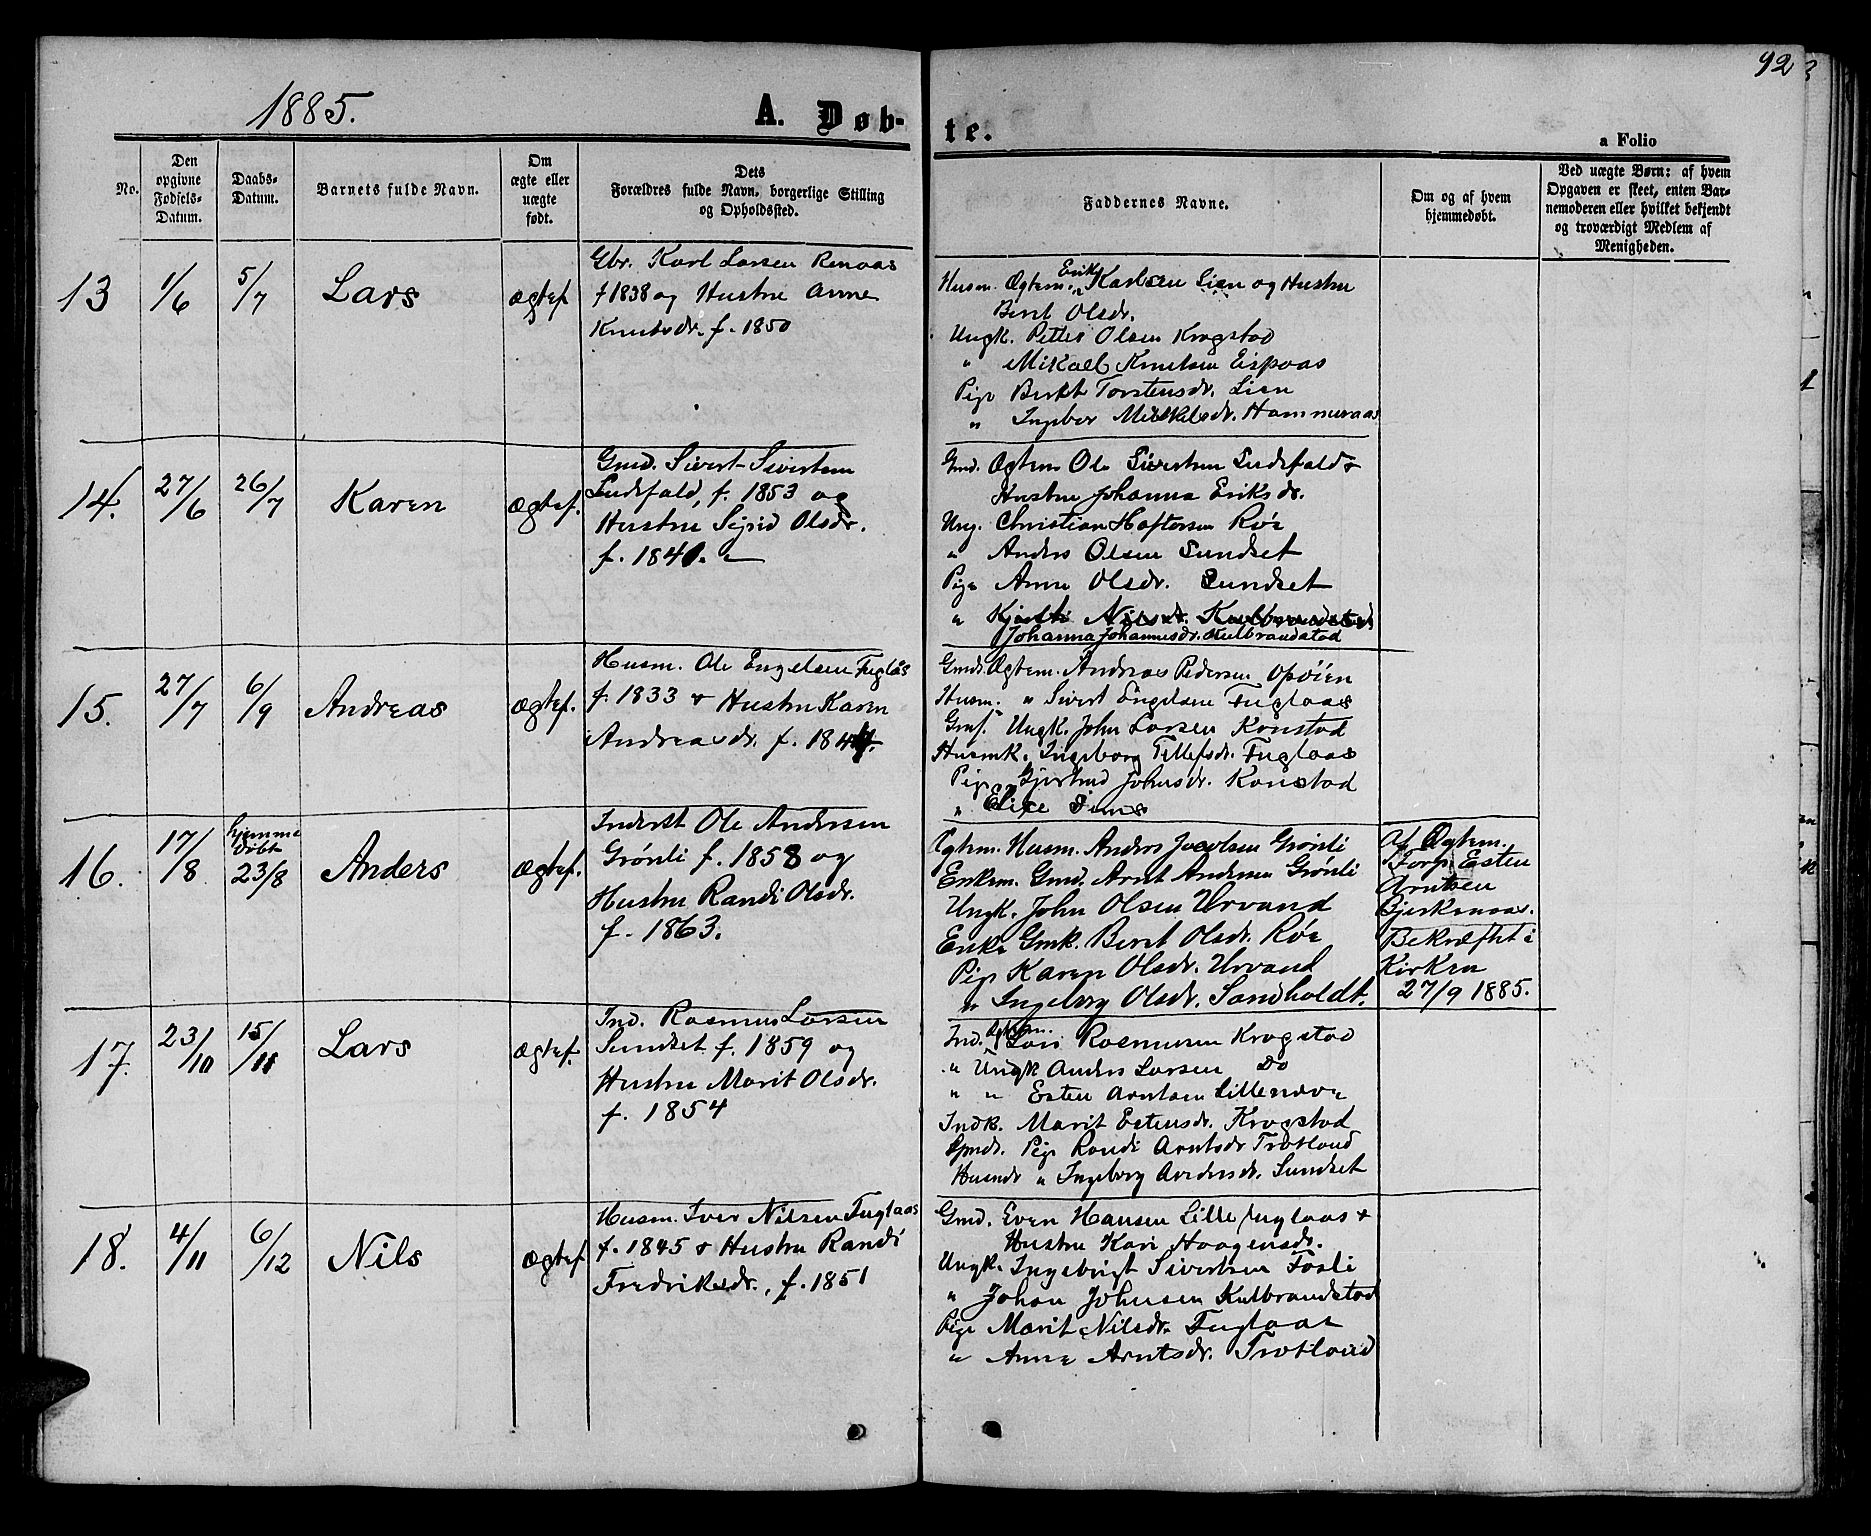 92
1885.
A. Døb-
te.
a Folio
No.
Den
opgivne
Fødsels-
Datum.
Daabs-
Datum.
Barnets fulde Navn.
Om
ægte eller
uægte
født.
Dets
Forældres fulde Navn, borgerlige Stilling
og Opholdssted.
Faddernes Navne.
Om og af hvem
hjemmedøbt.
Ved uægte Børn: af hvem
Opgaven er skeet, enten Bar-
nemoderen eller hvilket bekjendt
og troværdigt Medlem af
Menigheden.
13 1/6 5/7 Lars Ægtef.
Gbr. Karl Larsen Renaas
f 1838 og Hustru Anne
Knutsdr. f. 1850
Husm. Ægtem. Erik Karlsen Lien og Hustru
Berit Olsdr.
Ungk. Petter Olsen Krogstad
" Mikael Knutsen Espaas
Pige Berit Torstensdr. Lien
" Ingebor Mikkelsdr. Hammeraas
14. 27/6 26/7 Karen Ægtef.
Gmd. Sivert Sivertsen
f. 1853 og
Hustru Sigrid Olsdr.
f. 1841.
Gmd. Ægtem Ole Sivertsen
Hustru Johanna Eriksdr.
Ung. Christian Haftorsen Röe
" Anders Olsen Sundset
Pige Anne Olsdr. Sundset
" Kjersti Nilsdr. Kulbrandstad
Johanna Johannesdr. Kulbrandstad
15. 27/7 6/9 Andreas Ægtef.
Husm. Ole Engelsen Fuglås
f. 1833 & Hustru Karen
Andreasdr. f. 1844.
Gmd. Ægtem. Andreas Pedersen Opöien
Husm. " Sivert Engelsen Fuglaas
Ungk. John Larsen Konstad
Husmk. Ingeborg Tellefsdr. Fuglaas
Pige Gjertrud Johnsdr. Konstad
"
16. 17/8 hjemme
döbt
23/8 Anders Ægtef.
Inderst Ole Andersen
Grönli f. 1858 og
Hustru Randi Olsdr.
f. 1863.
Ægtem. Husm. Anders Jacobsen Grönli
Enkem. Gmd. Arnt Andersen Grönli
Ungk. John Olsen Urvand
Enke Gmk. Berit Olsdr. Röe
Pige Karen Olsdr. Urvand
" Ingeborg Olsdr. Sandholdt.
Af Ægtem.
Forp. Esten
Arntsen
Bjerkenaas.
Bekræftet i
Kirken
27/9 1885.
17. 23/10 15/11 Lars Ægtef.
Ind. Rasmus Larsen
Sundset f. 1859 og
Hustru Marit Olsdr.
f. 1854
Ind. Ægtem. Lars Rasmusen Krogstad
" Ungk Anders Larsen Do
" " Esten Arntsen
Indk. Marit Estensdr. Krogstad
Gmdr. Pige Randi Arntsdr Trotland
Husmdr " Ingeborg Andersdr. Sundset
18. 4/11 6/12 Nils Ægtef
Husm. Iver Nilsen Fuglaas
f. 1845 & Hustru Randi
Fredriksdr., f. 1851
Gmd. Even Hansen Lillefuglaas &
Hustru Kari Haagensdr.
Ungk. Ingebrigt Sivertsen Fosli
" Johan Johnsen Kulbrandstad
Pige Marit Nilsdr. Fuglaas
" Anne Arntsdr. Trotland